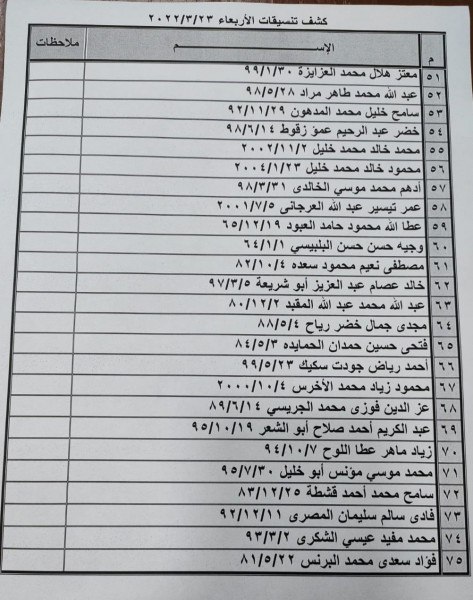 كشف تنسيقات الأربعاء ٢٠٢٢/٣/٢٣
م الإســـم ملاحظات
٥١ معتز هلال محمد العزايزة ٩٩/١/٣٠
٥٢ عبد الله محمد طاهر مراد ٩٨/٥/٢٨
٥٣ سامح خليل محمد المدهون ٩٢/١١/٢٩
٥٤ خضر عبد الرحيم عمؤ زقوط ٩٨/٦/١٤
٥٥ محمد خالد محمد خليل ٢٠٠٢/١١/٢
٥٦ محمود خالد محمد خليل ٢٠٠٤/١/٢٣
٥٧ أدهم محمد موسي الخالدى ٩٨/٣/٣١
٥٨ عمر تيسير عبد الله العرجانى ٢٠٠١/٧/٥
٥٩ عطا الله محمود حامد العبود ٦٥/١٢/١٩
٦٠ وجيه حسن حسن البلبيسي ٦٤/١/١
٦١ مصطفى نعيم محمود سعده ٨٢/١٠/٤
٦٢ خالد عصام عبد العزيز أبو شريعة ٩٧/٣/٥
٦٣ عبد الله محمد عبد الله المقيد ٨٠/١٢/٢
٦٤ مجدى جمال خضر رياح ٨٨/٥/٤
٦٥ فتحى حسين حمدان الحمايده ٨٤/٥/٣
٦٦ أحمد رياض جودت سكيك ٩٩/٥/٢٣
٦٧ محمود زياد محمد الأخرس ٢٠٠٠/١٠/٤
٦٨ عز الدين فوزى محمد الجريسي ٨٩/٦/١٤
٦٩ عبد الكريم أحمد صلاح أبو الشعر ٩٥/١٠/١٩
٧٠ زياد ماهر عطا اللوح ٩٤/١٠/٧
٧١ محمد موسي مؤنس أبو خليل ٩٥/٧/٣٠
٧٢ سامح محمد أحمد قشطة ٨٣/١٢/٢٥
٧٣ فادى سالم سليمان المصرى ٩٢/١٢/١١
٧٤ محمد مفيد عيسي الشكرى ٩٣/٣/٢
٧٥ فؤاد سعدى محمد البرنس ٨١/٥/٢٢